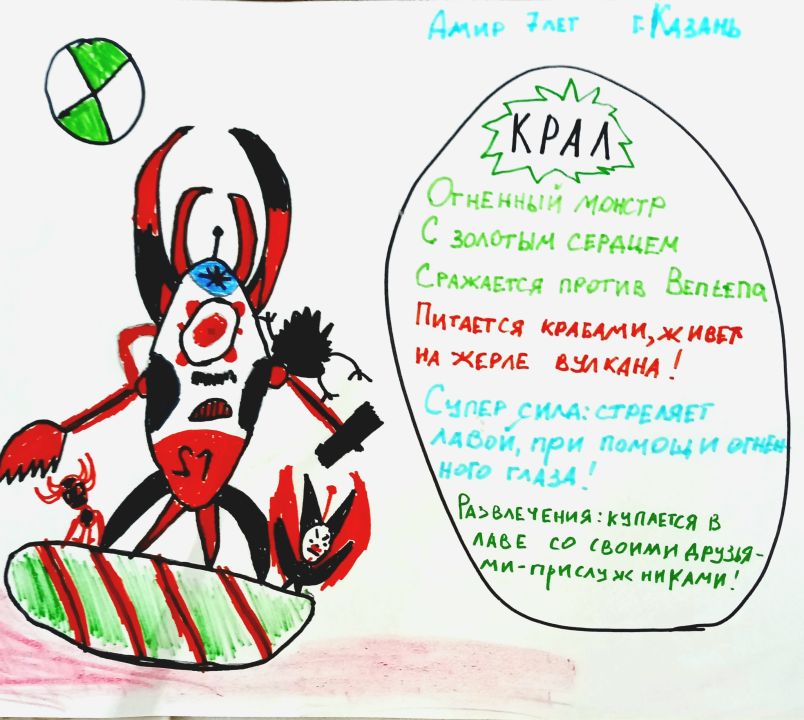 Амир 7лет г. Казань
КРАЛ
Огненный монстр
С золотым сердцем
Сражается против Вентепа
Питается крабами, живет
на жерле вулкана!
Супер сила: стреляет
лавой, при помощи огнен
ного глаза!
Развлечения: купается в
лаве со своими друзья-
ми-прислужниками!
S1